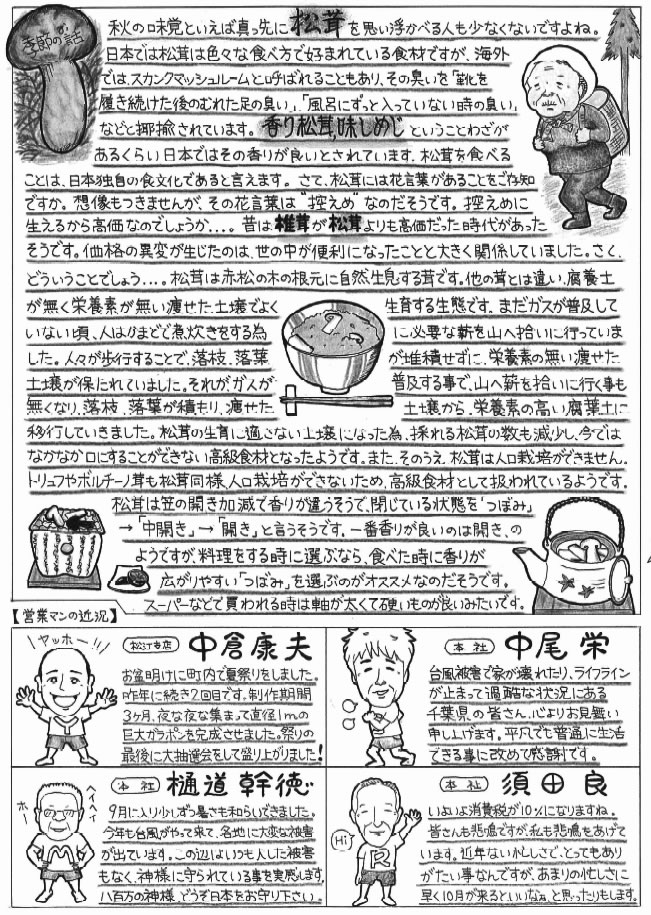 季節のお話
秋の味覚といえば真っ先に松茸を思い浮かべる人も少なくないですよね。
日本では松茸は色々な食べ方で好まれている食材ですが、海外
では、スカンクマッシュルームと呼ばれることもあり、その臭いを「靴を
履き続けた後のむれた足の臭い」、「風呂にずっと入っていない時の臭い」
などと揶揄されています。香り松茸、味しめじということわざが
あるくらい日本ではその香りが良いとされています。松茸を食べる
ことは、日本独自の食文化であると言えます。さて、松茸には花言葉があることをご存知
ですか。想像もつきませんが、その花言葉は"控えめ"なのだそうです。控えめに
生えるから高価なのでしょうか…。昔は椎茸が松茸よりも高価だった時代があった
そうです。価格の異変が生じたのは、世の中が便利になったことと大きく関係していました。さて、
どういうことでしょう…。松茸は赤松の木の根元に自然生息する茸です。他の茸とは違い、腐養土
が無く栄養素が無い痩せた土壌でよく生育する生態です。まだガスが普及して
いない頃、人はかまどで煮炊きをする為に必要な薪を山へ拾いに行っていま
した。人々が歩行することで、落枝、落葉が堆積せずに、栄養素の無い痩せた
土壌が保たれていました。それがガスが普及する事で、山へ薪を拾いに行く事も
無くなり、落枝、落葉が積もり、痩せた土壌から、栄養素の高い腐葉土に
移行していきました。松茸の生育に適さない土壌になった為、採れる松茸の数も減少し、今では
なかなか口にすることができない高級食材となったようです。また、そのうえ、松茸は人口栽培ができません。
トリュフやポルチーノ茸も松茸同様、人口栽培ができないため、高級食材として扱われているようです。
松茸は笠の開き加減で香りが違うそうで、閉じている状態を「つぼみ」
→「中開き」→「開き」と言うそうです。一番香りが良いのは開き、の
ようですが、料理をする時に選ぶなら、食べた時に香りが
広がりやすい「つぼみ」を選ぶのがオススメなのだそうです。
スーパーなどで買われる時は軸が太くて硬いものが良いみたいです。
【営業マンの近況】
ヤッホー!!
松江支店 中倉康夫
お盆明けに町内で夏祭りをしました。
昨年に続き2回目です。制作期間
3ヶ月、夜な夜な集まって直径1mの
巨大ガラポンを完成させました。祭りの
最後に大抽選会をして盛り上がりました!
本社 中尾栄
台風被害で家が壊れたり、ライフライン
が止まって過酷な状況にある
千葉県の皆さん、心よりお見舞い
申し上げます。平凡でも普通に生活
できる事に改めて感謝です。
ヘイヘイ
ホー
M
本社 樋道幹徳
9月に入り少しずつ暑さも和らいできました。
今年も台風がやって来て、各地に大変な被害
が出ています。この辺はいつも大した被害
もなく、神様に守られている事を実感します。
八百万の神様、どうぞ日本をお守り下さい。
Hi
R
本社 須田良
いよいよ消費税が10%になりますね。
皆さんも悲鳴ですが、私も悲鳴をあげて
います。近年ない忙しさで、とってもあり
がたい事なんですが、あまりの忙しさに
早く10月が来るといいなぁ、と思ったりもします。